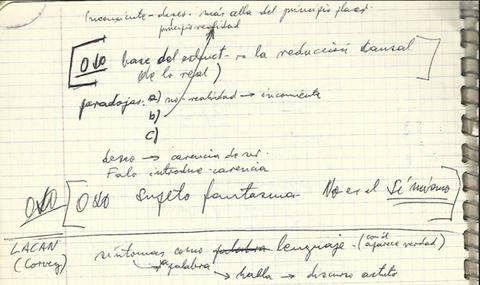 Inconciente - deseo - más alla del principio placer.
principio realidad
base del → la reducción causal
(de lo real)
paradojas: a) no-realidad → inconciente
b)
c)
deseo → carencia de ser.
Falo introduce carencia
Sujeto fantasma No es el Sí mismo
LACAN
síntomas como palabra lenguaje - (aparece verdad)
(Corvez) → palabra → habla → discurso